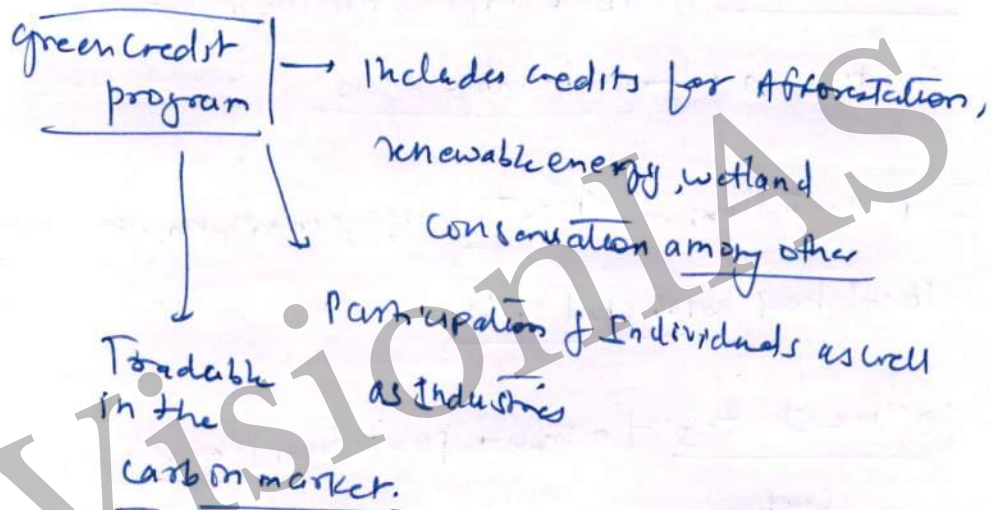 Green Credit
program
→ Includes credits for Afforestation,
renewable energy, wetland
conservation among other
Participation of Individuals as well
as Industries
Tradable
in the
carbon market.
VisionIAS